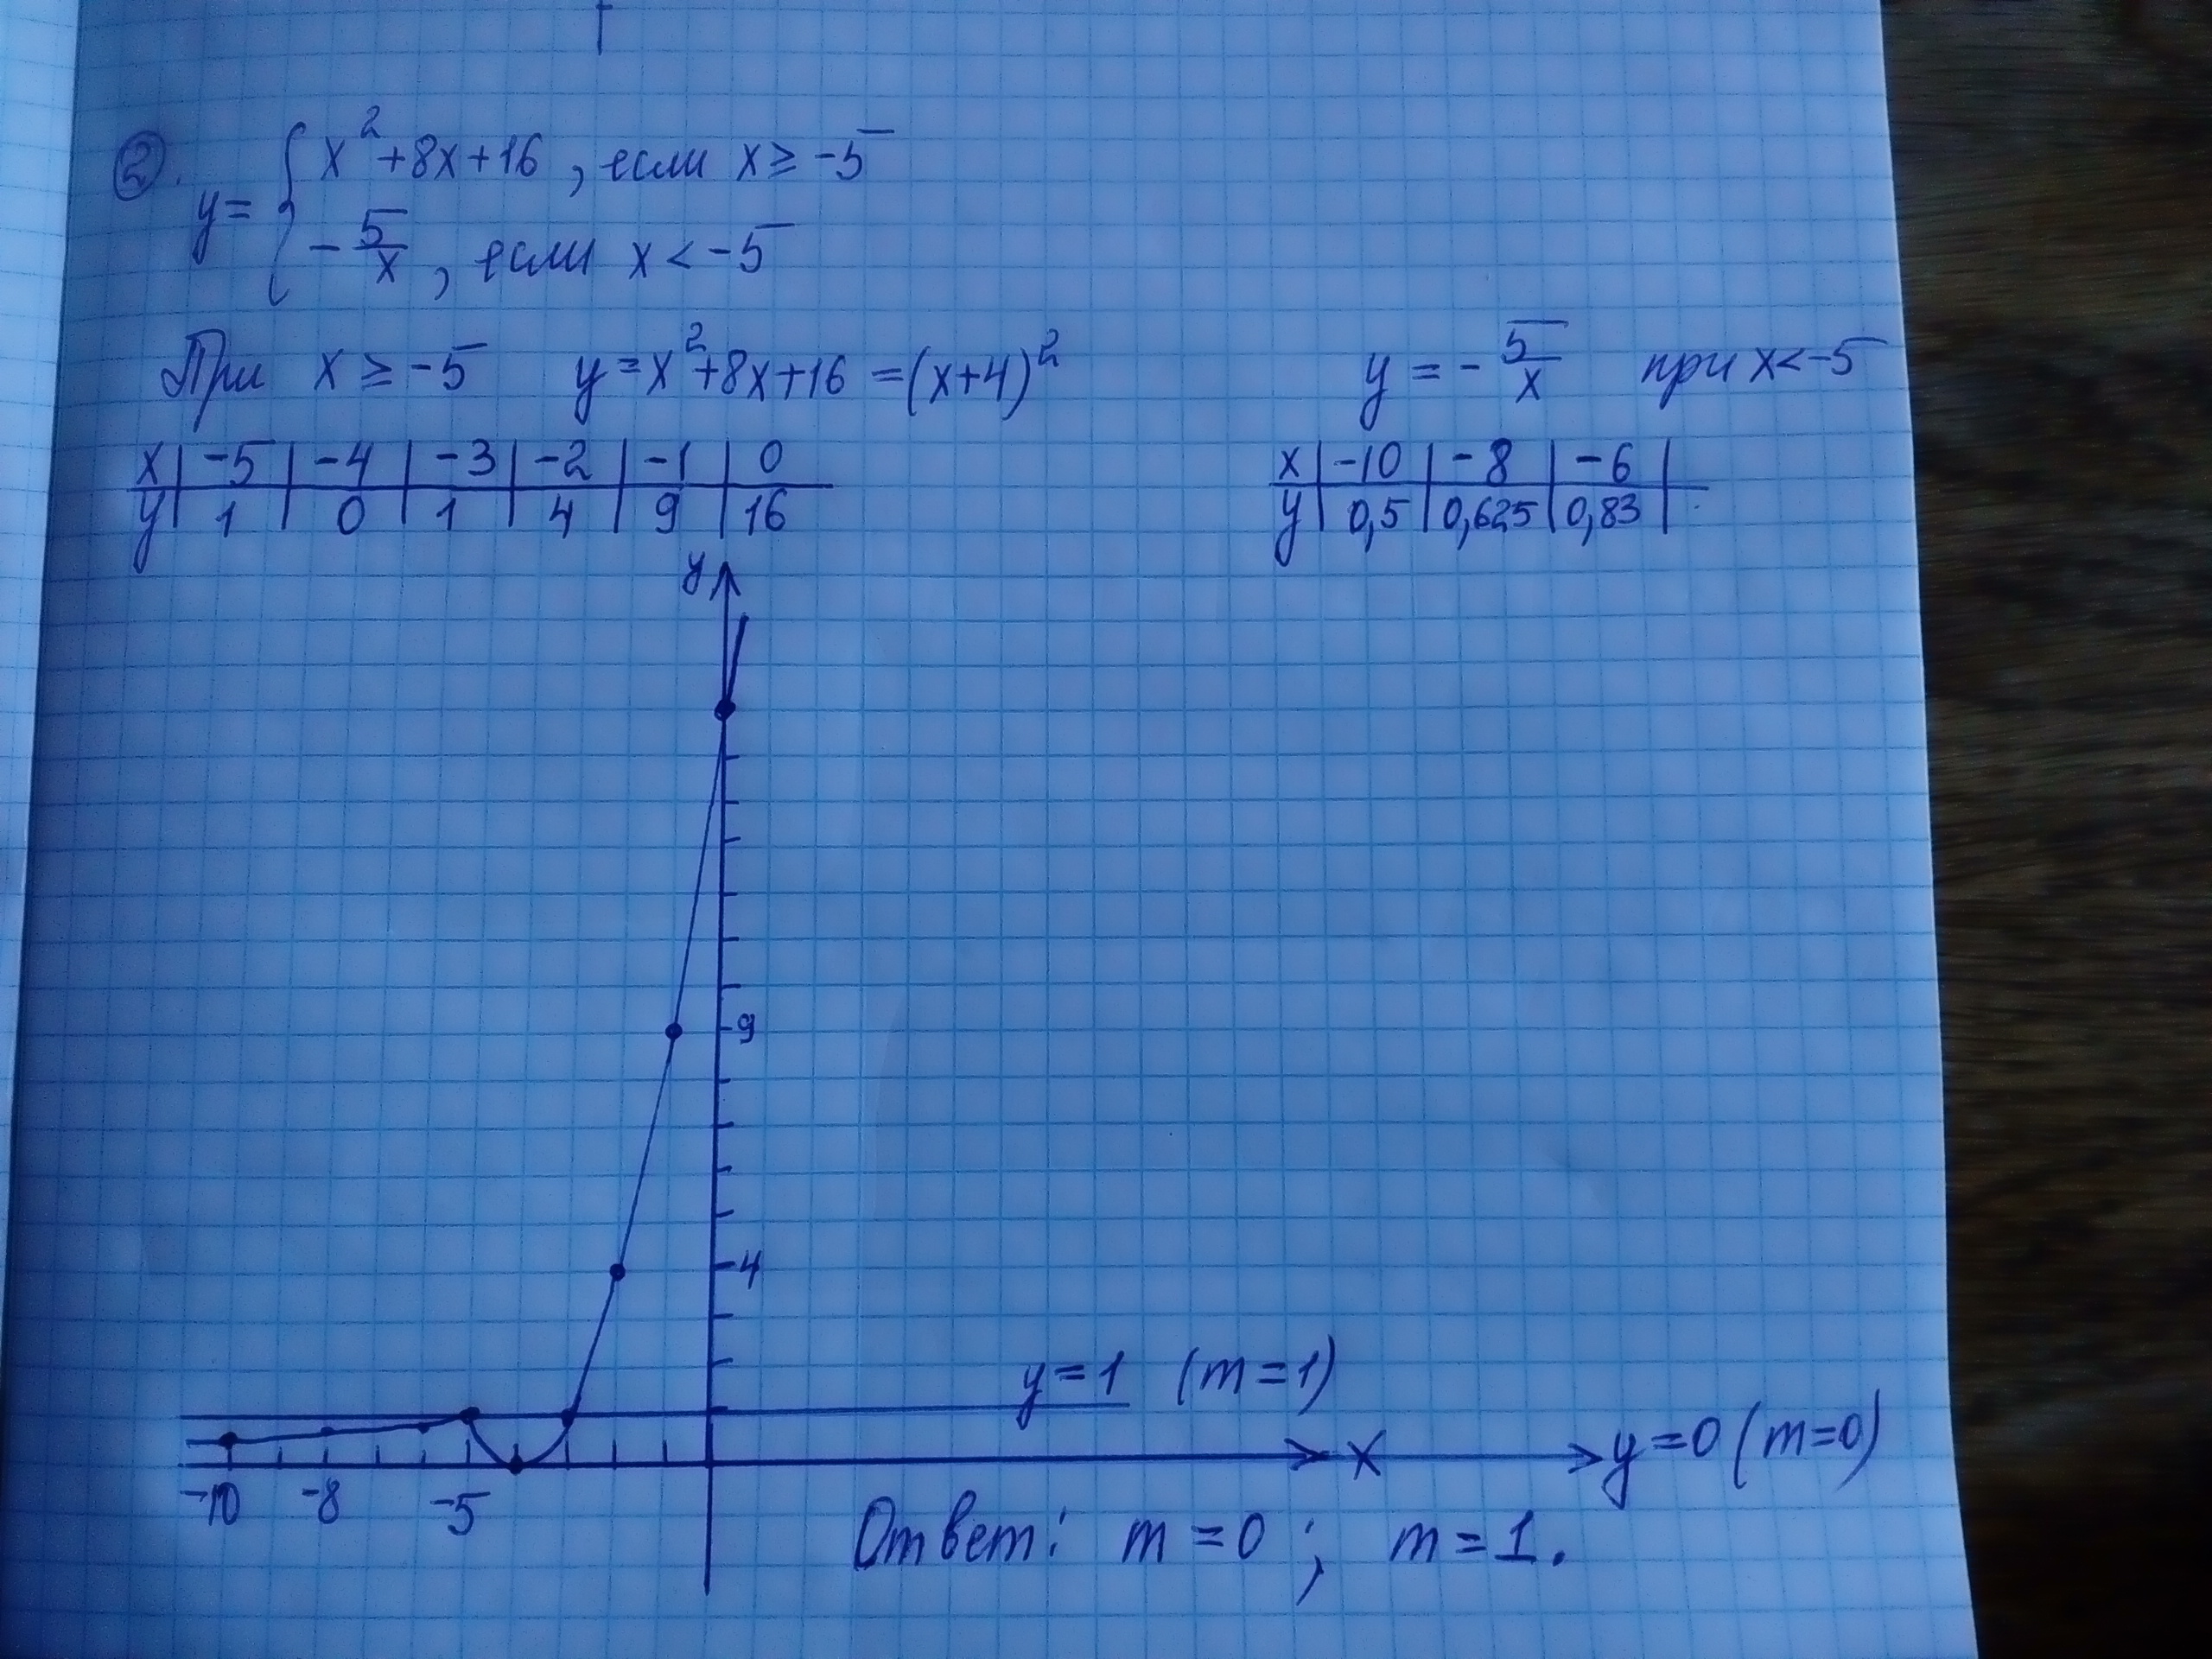 2.
y = { x² + 8x + 16, если x ≥ -5
- 5/x, если x < -5
При x ≥ -5 y = x² + 8x + 16 = (x+4)² y = - 5/x при x < -5
x | -5 | -4 | -3 | -2 | -1 | 0
y | 1 | 0 | 1 | 4 | 9 | 16
x | -10 | -8 | -6 |
y | 0,5 | 0,625 | 0,83 |
y
9
4
y = 1 (m = 1)
x y = 0 (m = 0)
-10 -8 -5
Ответ: m = 0 ; m = 1.